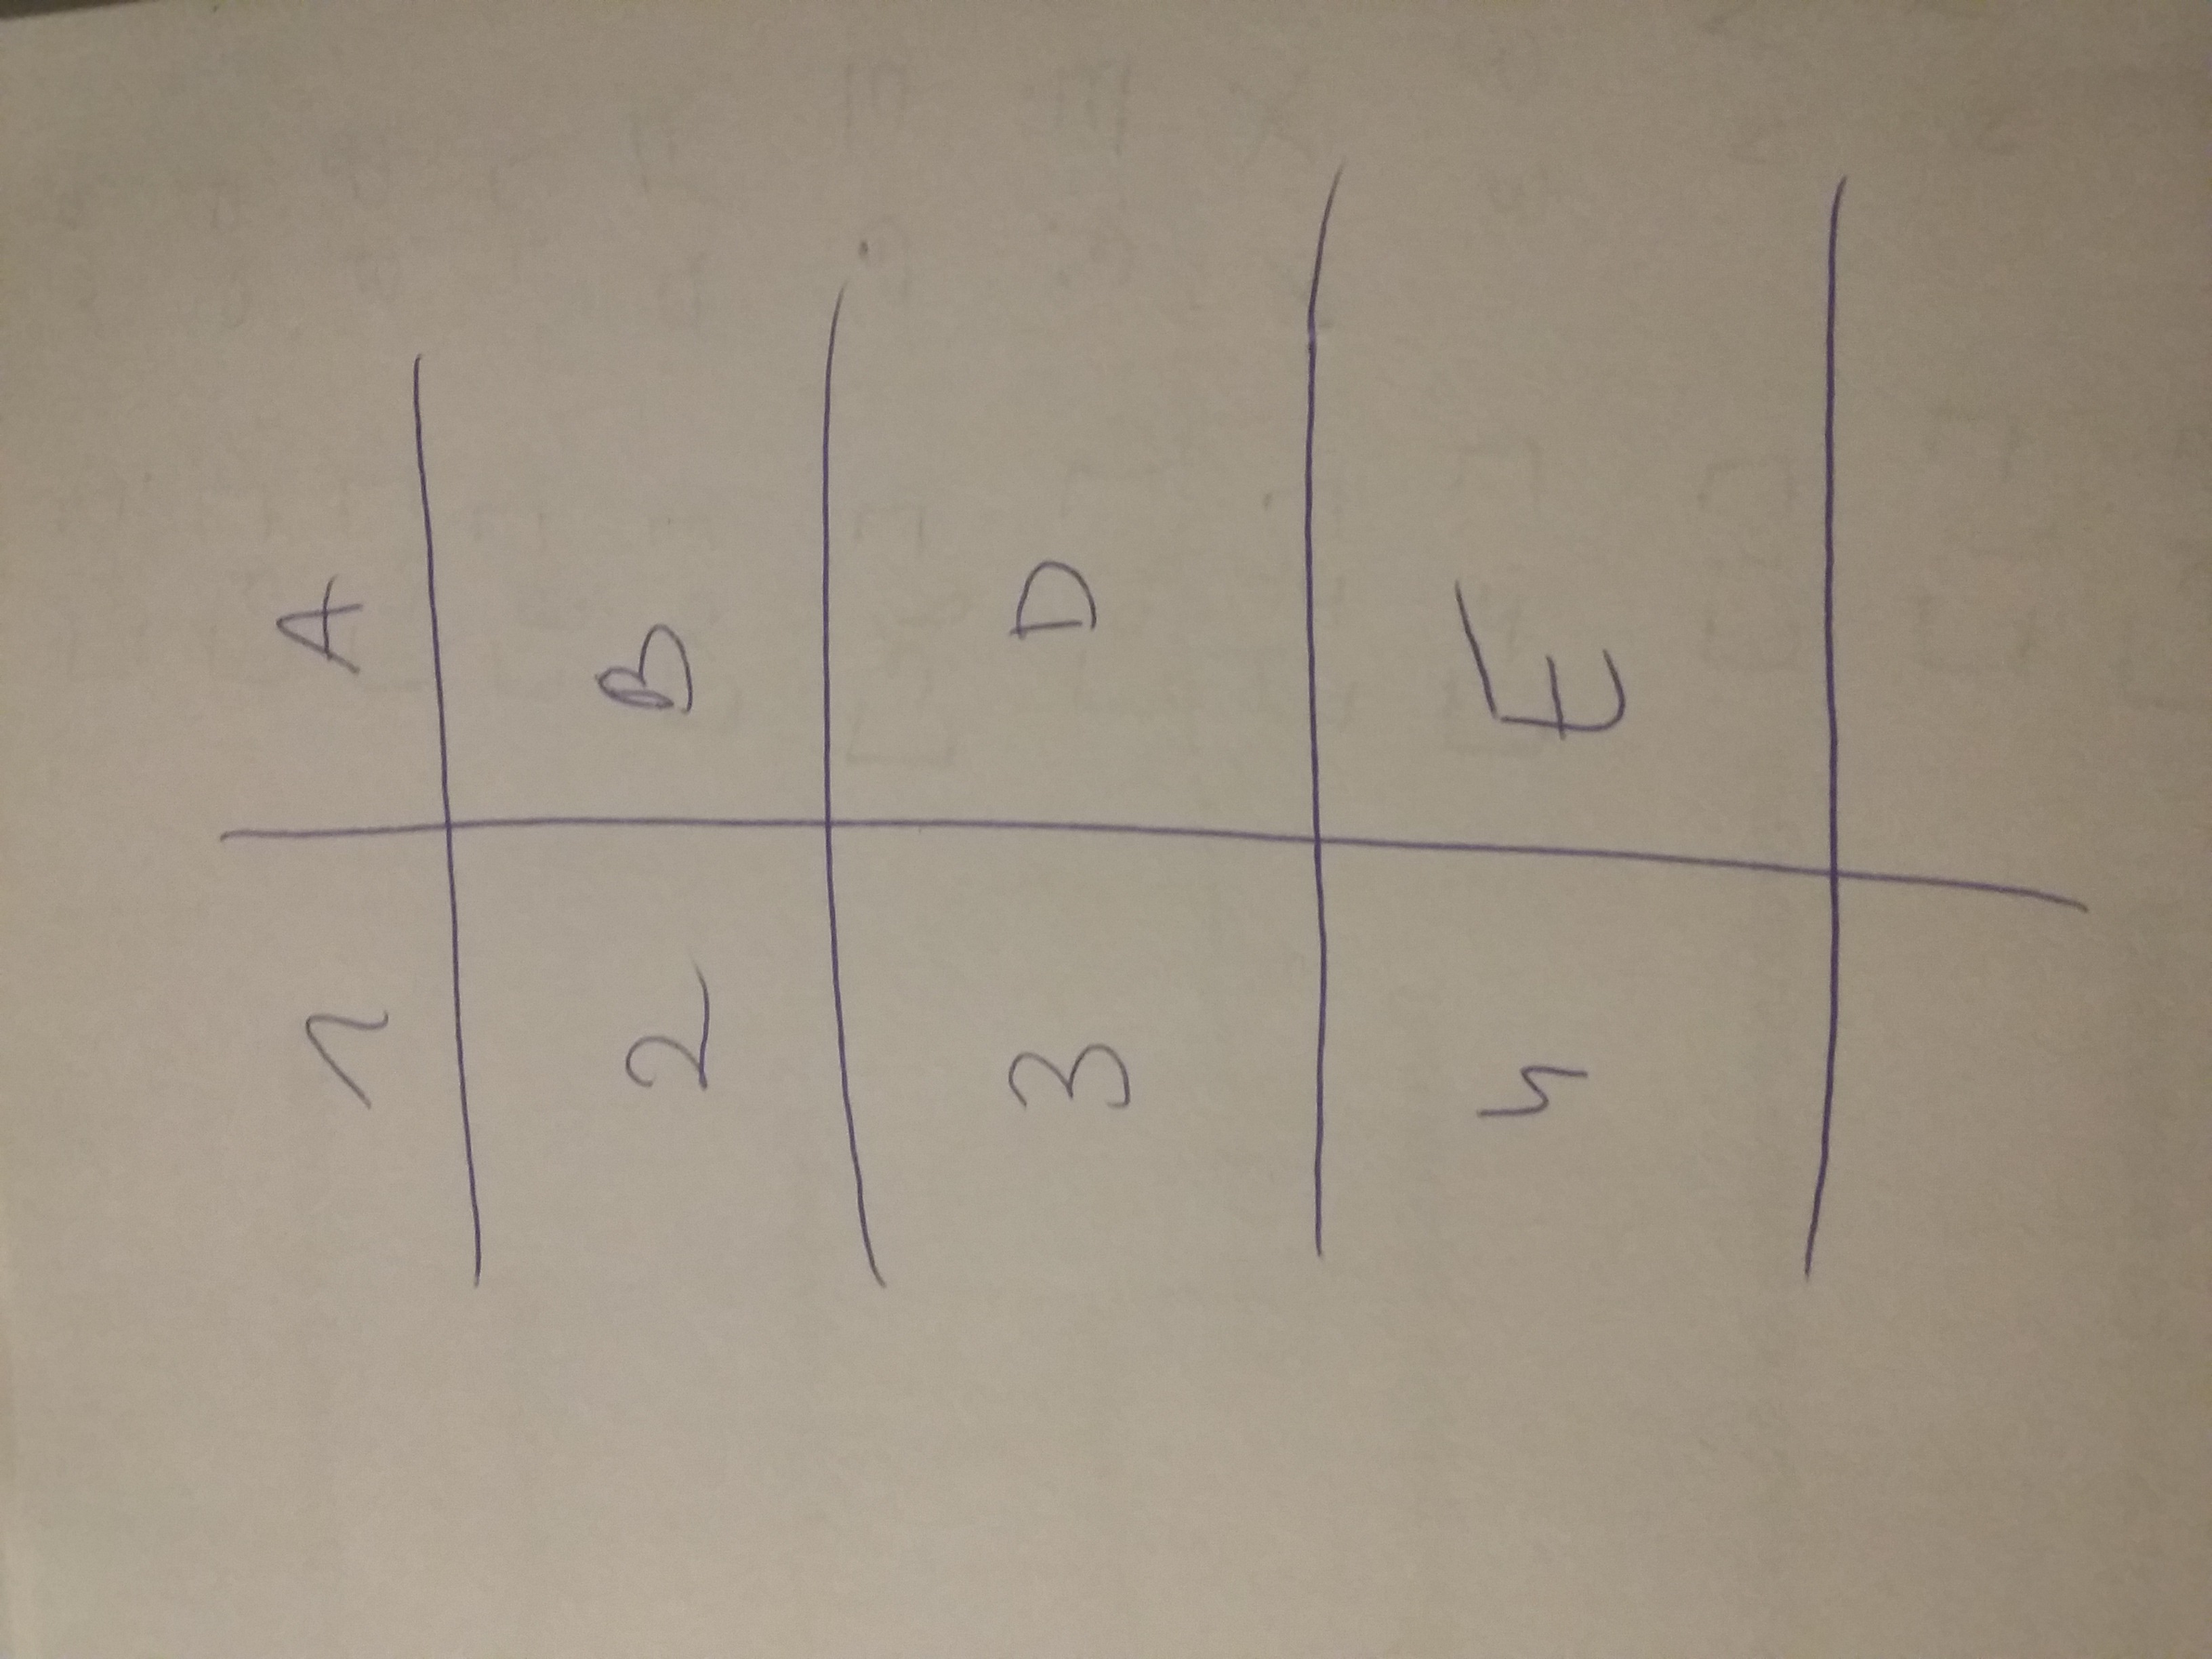 1 A
2 B
3 D
4 E